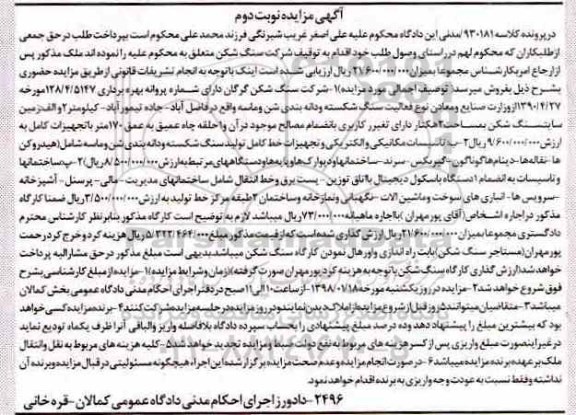 آگهی مزایده نوبت دوم
در پرونده کلاسه ۹۳۰۱۸۱/مدنی این دادگاه محکوم علیه علی اصغر غریب شیرنگی فرزند محمد علی محکوم است بپرداخت طلب در حق جمعی
از طلبکاران که محکوم لهم در راستای وصول طلب خود اقدام به توقیف شرکت سنگ شکن متعلق به محکوم علیه را نموده اند ملک مذکور پس
از ارجاع امر بکارشناس مجموعا بمیزان ۲۱/۶۰۰/۰۰۰/۰۰۰ ریال ارزیابی شده است اینک با توجه به انجام تشریفات قانونی از طریق مزایده حضوری
بشرح ذیل بفروش میرسد( توصیف اجمالی مورد مزایده)۱-شرکت سنگ شکن گرگان دارای شماره پروانه بهره برداری ۱۲۸/۴/۵۱۴۷ مورخه
۱۳۹۰/۴/۲۷ از وزارت صنایع و معادن نوع فعالیت سنگ شکسته ودانه بندی شن وماسه واقع در فاضل آباد- جاده تیمور آباد- کیلومتر ۲ والف زمین
سایت سنگ شکن بمساحت ۲هکتار دارای تغییر کاربری بانضمام مصالح موجود در آن و ۱حلقه چاه عمیق به عمق ۱۷۰متر با تجهیزات کامل به
ارزش ۹/۶۰۰/۰۰۰/۰۰۰ ریال ۲-ب تاسیسات مکانیکی والکتریکی و تجهیزات خط کامل تولید سنگ شکسته ودانه بندی شن و ماسه شامل(هیدروکن
ها -نقاله ها- دینام هاگوناگون -گیربکس -سرند- ساختمانها ودیوارک ها و پایه ها ودستگاههای مرتبط به ارزش ۸/۵۰۰/۰۰۰/۰۰۰ ریال)۲-پ ساختمانها
و تاسیسات به انضمام ۱دستگاه باسکول دیجیتال با اتاق توزین- پست برق وخط انتقال شامل ساختمانهای مدیریت -مالی- پرسنل - آشپزخانه
-سرویس ها- انباری های سوخت وماشین الات -نگهبانی ونمازخانه وساختمان ۲طبقه مرکز خط تولید به ارزش ۳/۵۰۰/۰۰۰/۰۰۰ ریال ضمنا کارگاه
مذکور در اجاره اشخاص(آقای پورمهران )با اجاره ماهیانه ۷۳/۰۰۰/۰۰۰ ریال میباشد لازم به توضیح است کارگاه مذکور بنابر نظر کارشناس محترم
دادگستری مجموعا بمیزان ۲۱/۶۰۰/۰۰۰/۰۰۰ ریال ارزش گذاری شده است که از قیمت مذکور مبلغ ۵/۳۲۲/۴۶۴/۰۰۰ ریال هزینه کرد و خرج کرد رحمت
پور مهران(مستاجر سنگ شکن) بابت راه اندازی واورهال نمودن کارگاه سنگ شکن میباشد بدیهی است مبلغ مذکور در حق مشارالیه پرداخت
خواهد شد(ارزش گذاری کارگاه سنگ شکن با توجه به هزینه کرد پور مهران صورت گرفته)(زمان وشرایط مزایده)۱-مزایده از مبلغ کارشناسی بشرح
فوق شروع خواهد شد۲-مزایده در روز یکشنبه مورخه ۱۳۹۸/۰۷/۱۸از ساعت ۱۰ الی ۱۱ صبح در دفتر اجرای احکام مدنی دادگاه عمومی بخش کمالان
میباشد۳-متقاضیان میتوانند ۵ روز قبل از شروع مزایده از املاک دیدن نمایند ودر روز مزایده در جلسه مزایده شرکت کنند ۴-برنده مزایده کسی خواهد
بود که بیشترین مبلغ را پیشنهاد دهد وده درصد مبلغ پیشنهادی را بحساب سپرده دادگاه بلافاصله واریز والباقی آنرا ظرف یکماه تودیع نماید
در غیر اینصورت مبلغ واریزی پس از کسر هزینه های مربوط به نفع دولت ضبط ومزایده تجدید خواهد شد۵-کلیه هزینه های مربوط به نقل وانتقال
ملک بر عهده برنده مزایده میباشد۶-در صورت انجام مزایده وعدم صحت مزایده برگزار شده این اجراء هیچگونه مسئولیتی در قبال مزایده وبرنده آن
نداشته وفقط نسبت به عودت وجه واریزی به برنده اقدام خواهد نمود.
۲۴۹۶-دادورز اجرای احکام مدنی دادگاه عمومی کمالان- قره خانی